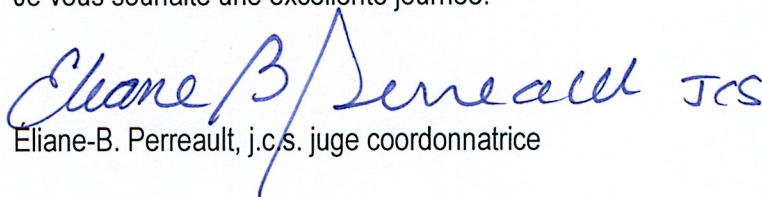 Je vous souhaite une excellente journée.
Eliane B Perreault JCS
Éliane-B. Perreault, j.c.s. juge coordonnatrice